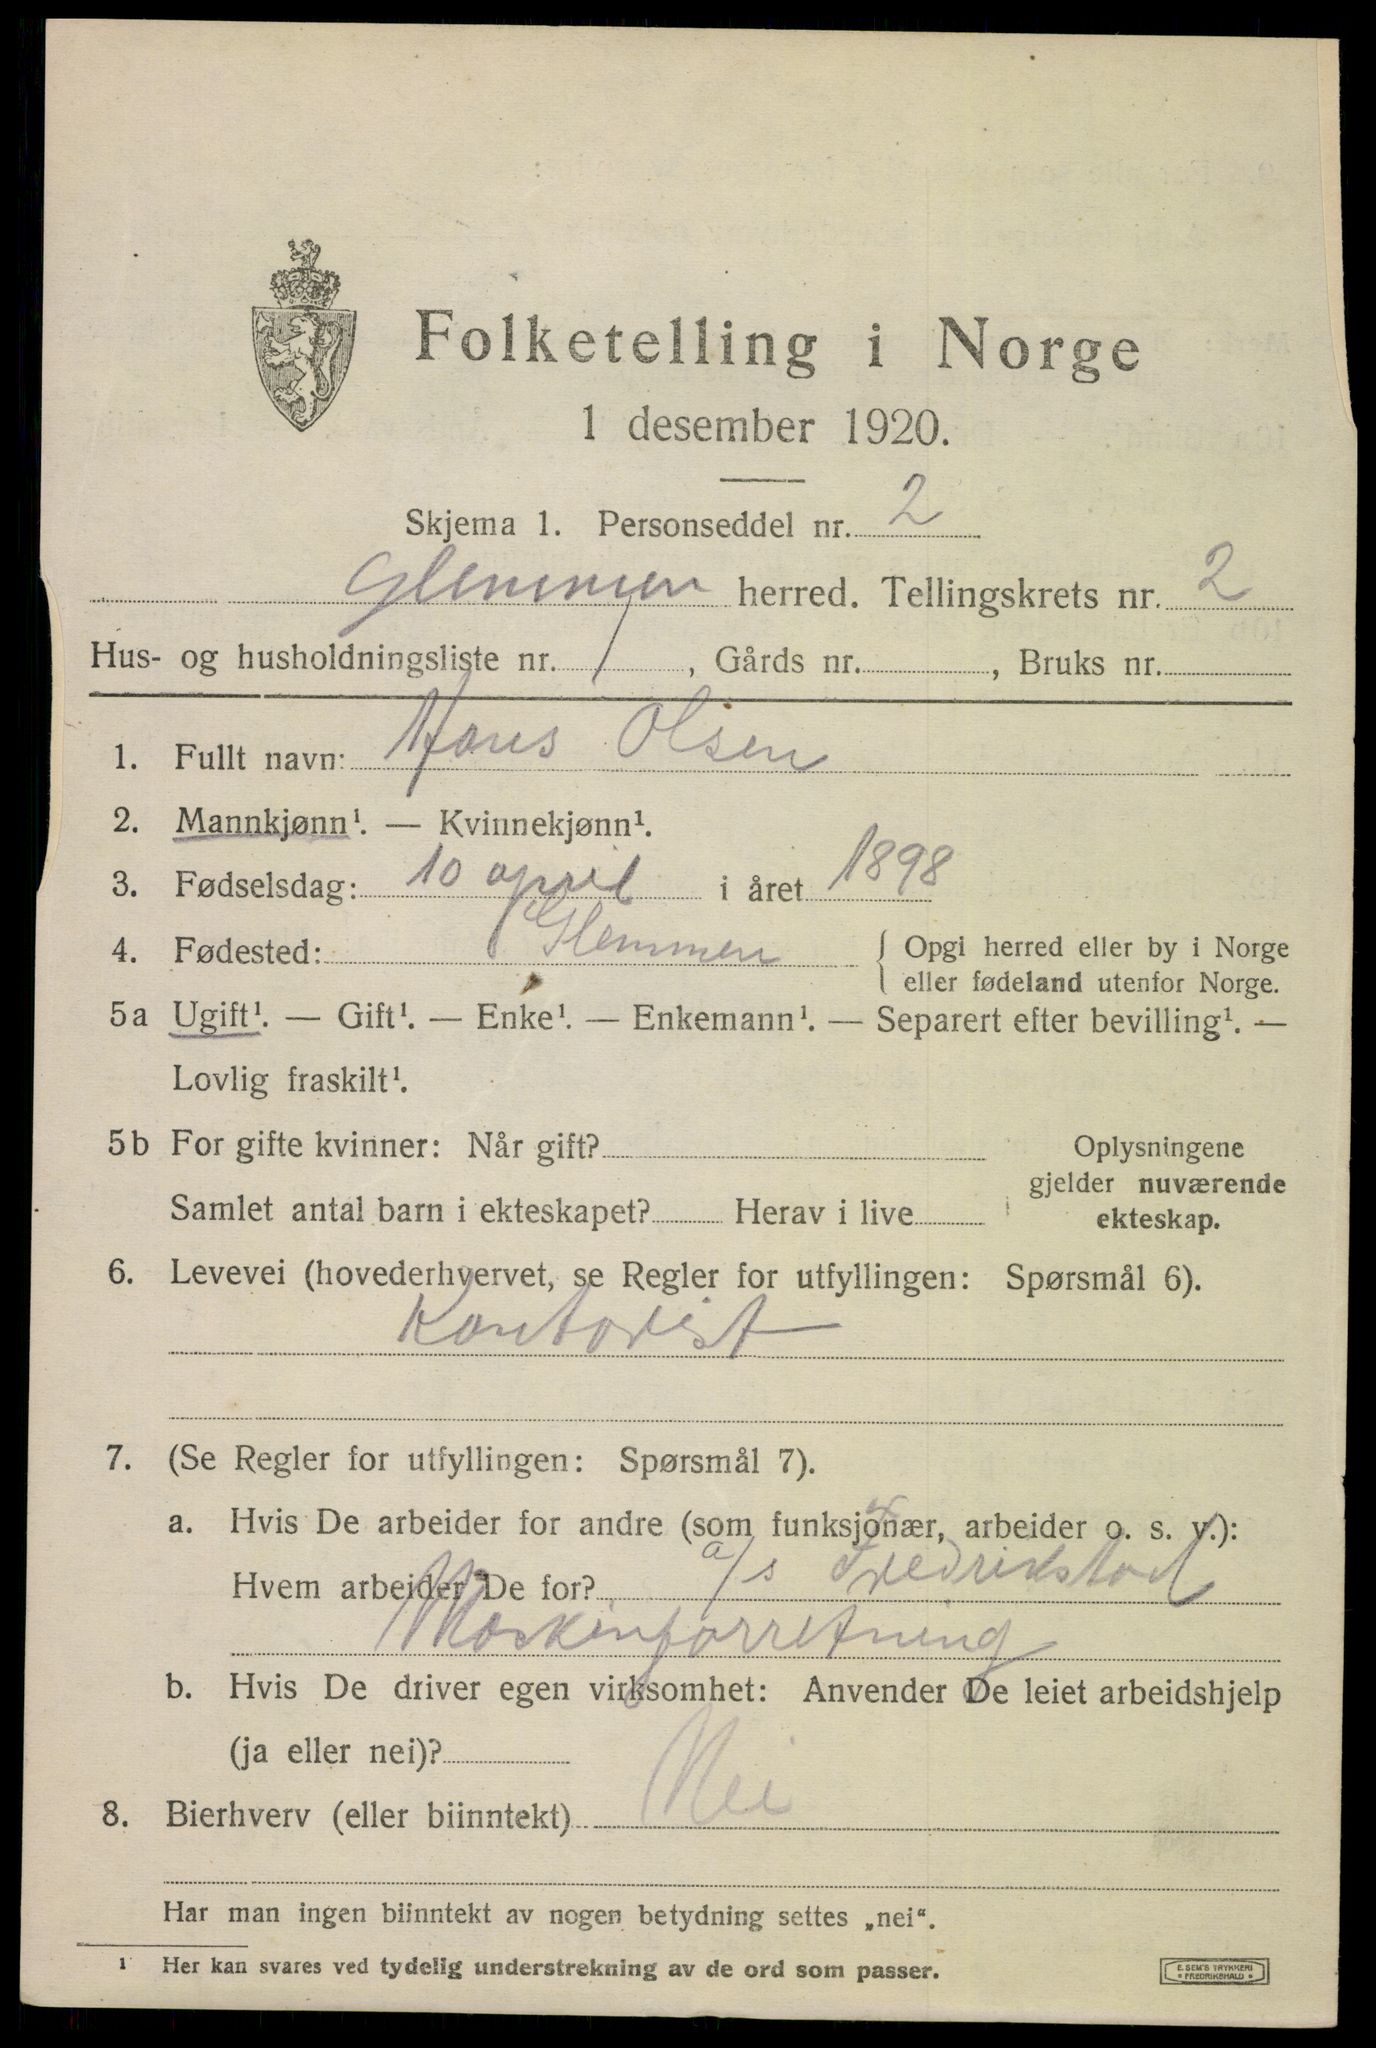 Folketelling i Norge
1 desember 1920.
Skjema 1. Personseddel nr. 2
Glemmen herred. Tellingskrets nr. 2
Hus- og husholdningsliste nr. 1, Gårds nr. , Bruks nr.
1. Fullt navn: Hans Olsen
2. Mannkjønn¹. — Kvinnekjønn¹.
3. Fødselsdag: 10 april i året 1898
4. Fødested: Glemmen { Opgi herred eller by i Norge
eller fødeland utenfor Norge.
5a Ugift¹. — Gift¹. — Enke¹. — Enkemann¹. — Separert efter bevilling¹. —
Lovlig fraskilt¹.
5b For gifte kvinner: Når gift? Oplysningene
gjelder nuværende
Samlet antal barn i ekteskapet? Herav i live ekteskap.
6. Levevei (hovederhvervet, se Regler for utfyllingen: Spørsmål 6).
Kontorist
7. (Se Regler for utfyllingen: Spørsmål 7).
a. Hvis De arbeider for andre (som funksjonær, arbeider o. s. v.):
Hvem arbeider De for? a/s Fredrikstad
Maskinforretning
b. Hvis De driver egen virksomhet: Anvender De leiet arbeidshjelp
(ja eller nei)?
8. Bierhverv (eller biinntekt) Nei
Har man ingen biinntekt av nogen betydning settes „nei“.
¹ Her kan svares ved tydelig understrekning av de ord som passer.
E. SEM'S TRYKKERI
FREDRIKSHALD